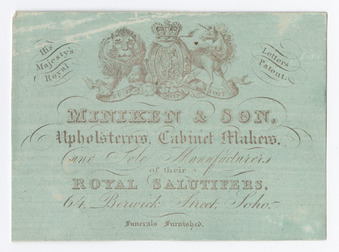 His
Majesty's
Royal
Letters
Patent.
MINIKEN & SON,
Upholsterers, Cabinet Makers,
and Sole Manufacturers
of their
ROYAL SALUTIFERS,
64, Berwick Street, Soho.
Funerals Furnished.